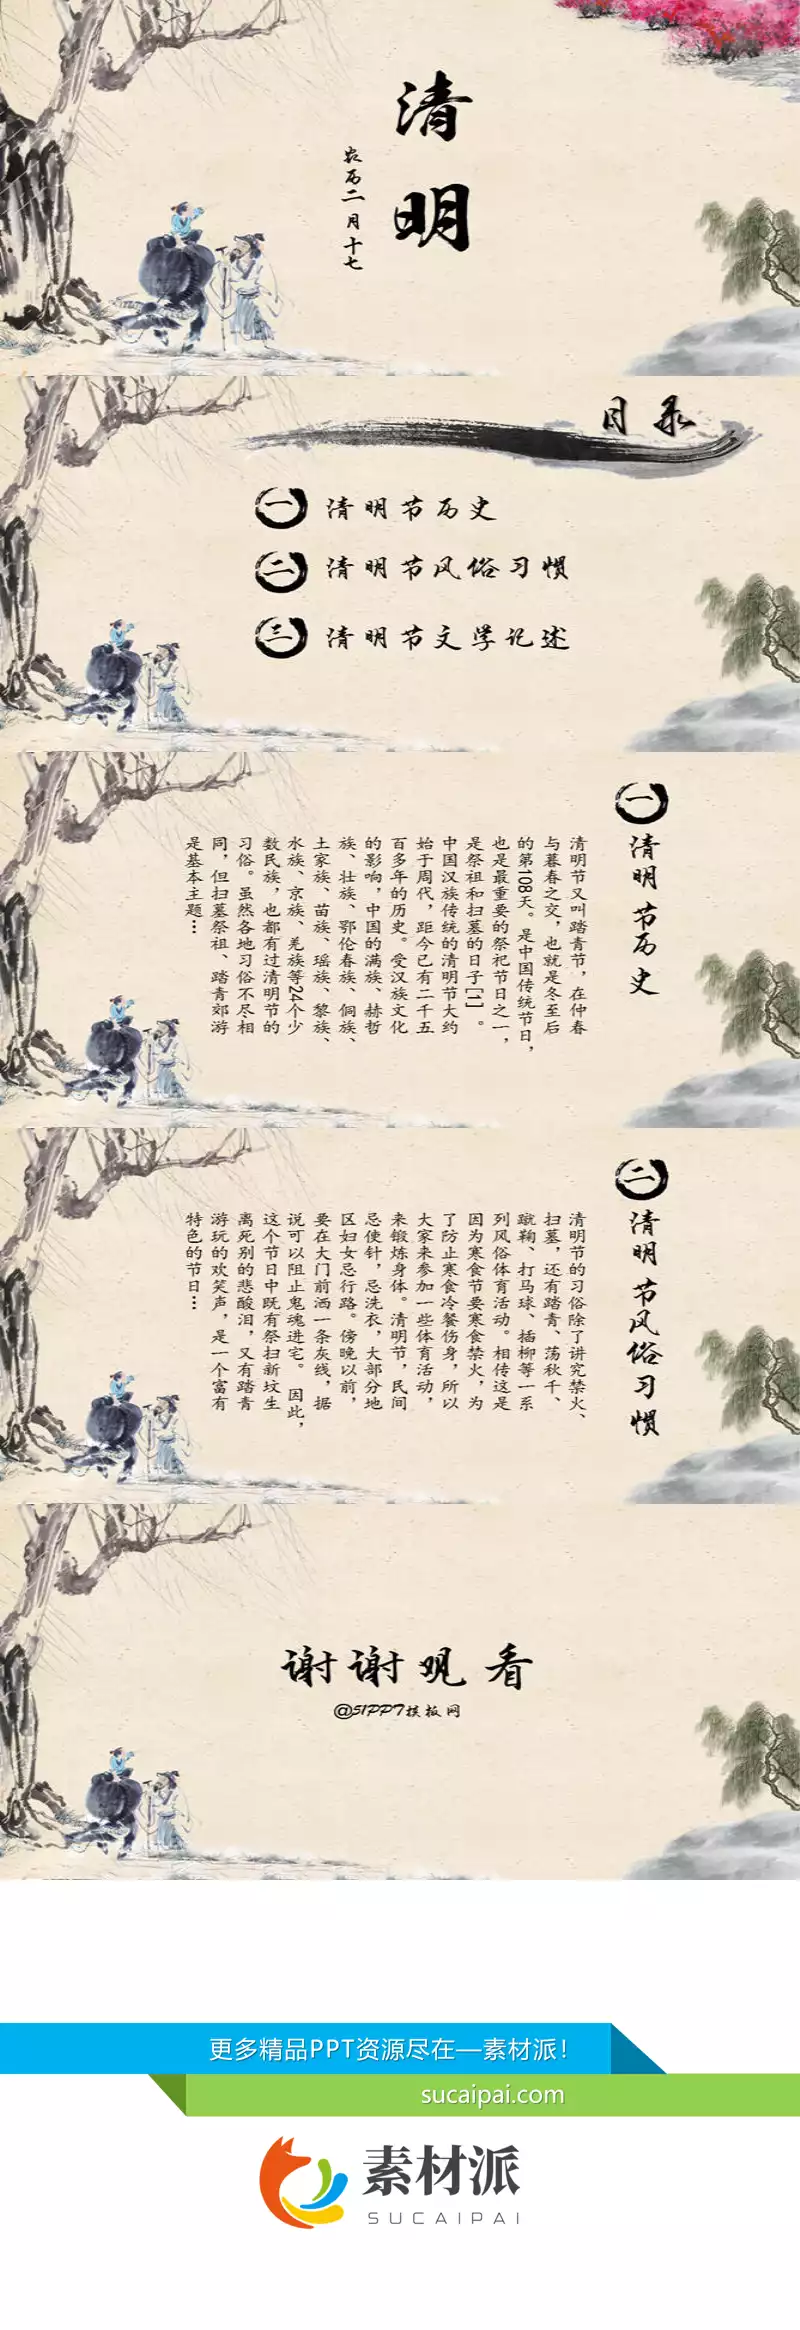 清明
农历二月十七
目录
一 清明节历史
二 清明节风俗习惯
三 清明节文学记述
一 清明节历史
清明节又叫踏青节，在仲春
与暮春之交，也就是冬至后
的第108天。是中国传统节日，
也是最重要的祭祀节日之一，
是祭祖和扫墓的日子[1] 。
中国汉族传统的清明节大约
始于周代，距今已有二千五
百多年的历史。受汉族文化
的影响，中国的满族、赫哲
族、壮族、鄂伦春族、侗族、
土家族、苗族、瑶族、黎族、
水族、京族、羌族等24个少
数民族，也都有过清明节的
习俗。虽然各地习俗不尽相
同，但扫墓祭祖、踏青郊游
是基本主题…
二 清明节风俗习惯
清明节的习俗除了讲究禁火、
扫墓，还有踏青、荡秋千、
蹴鞠、打马球、插柳等一系
列风俗体育活动。相传这是
因为寒食节要寒食禁火，为
了防止寒食冷餐伤身，所以
大家来参加一些体育活动，
来锻炼身体。清明节，民间
忌使针，忌洗衣，大部分地
区妇女忌行路。傍晚以前，
要在大门前洒一条灰线，据
说可以阻止鬼魂进宅。 因此，
这个节日中既有祭扫新坟生
离死别的悲酸泪，又有踏青
游玩的欢笑声，是一个富有
特色的节日…
谢谢观看
@51PPT模板网
更多精品PPT资源尽在—素材派！
sucaipai.com
素材派
SUCAIPAI